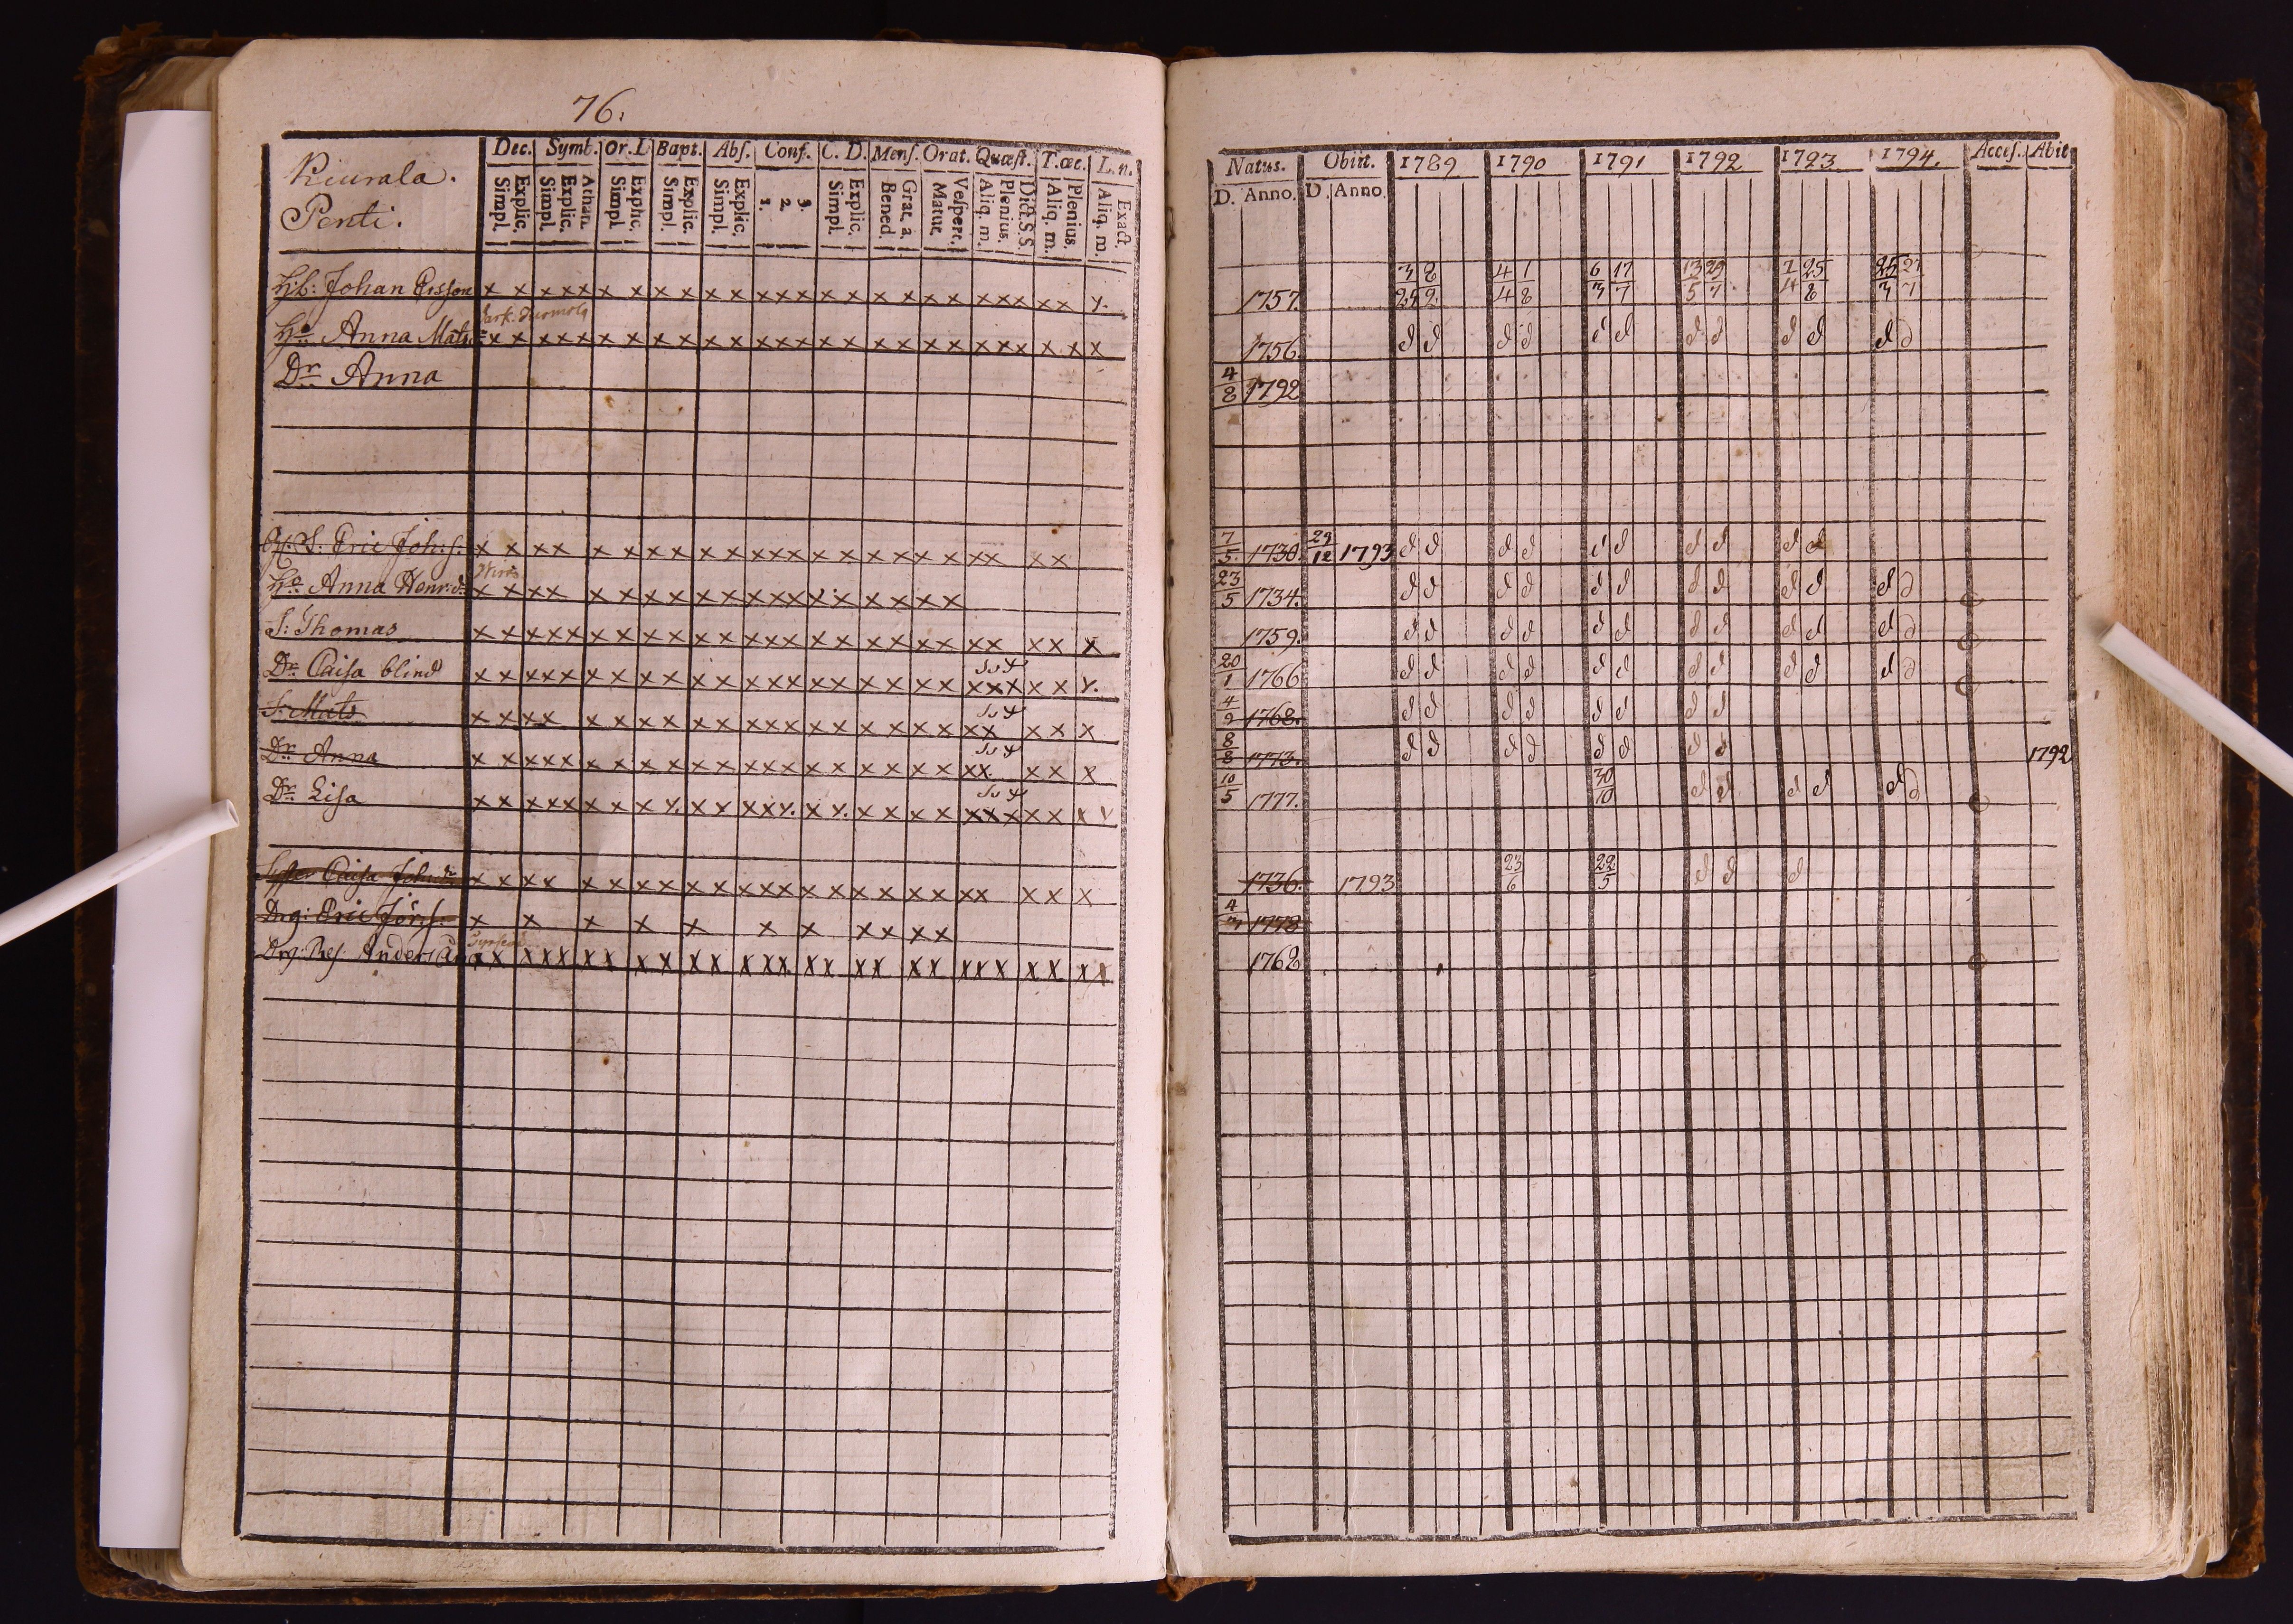 76.
Kiurala.
Penti.
Dec. Symb. Or. D Bapt. Abſ. Conf. C. D. Menſ. Orat. Quæſt. T. œc. L. n.
Simpl. Explic. Simpl. Explic. Athan. Simpl. Explic. Simpl. Explic. Simpl. Explic. 1. 2. 3. Simpl. Explic. Bened. Grat. a. Matut. Veſpert. Aliq. m. Plenius. Dict. S. S. Aliq. m. Plenius. Aliq. m. Exact.
Natus. Obiit. 1789 1790 1791 1792 1793 1794. Acceſ. Abit
D. Anno. D. Anno.
Hb: Johan Ersson x x x x x x x x x x x x x x x x x x x x x x x x x x y. 1757. 3/25 8/2 4/4 1/8 6/3 17/7 13/5 29/7 1/4 25/8 25/3 27/7
Ho Anna Mats x x x x x x x x x x x x x x x x x x x x x x x x x x x 1756 d d d d d d d d d d d d
Dr Anna 4/8 1792
S. Eric Joh: s: x x x x x x x x x x x x x x x x x x x x x x x x 7/5 1730. 29/12 1793 d d d d d d d d d d
Ho Anna Henr: d x x x x x x x x x x x x x x x x x x x x x 23/5 1734. d d d d d d d d d d d d
S: Thomas x x x x x x x x x x x x x x x x x x x x x x x x x x 1759. d d d d d d d d d d d d
Dr Caisa blind x x x x x x x x x x x x x x x x x x x x x x x x x x y. 20/1 1766 d d d d d d d d d d d d
S: Mats x x x x x x x x x x x x x x x x x x x x x x x x x 4/9 1768. d d d d d d d d
Dr Anna x x x x x x x x x x x x x x x x x x x x x x x x x x 8/8 1773. d d d d d d d d 1792
Dr Lisa x x x x x x x x y. x x x x y. x y. x x x x x x x x x x y 10/5 1777. 30/10 d d d d d d
Caisa Joh: dr x x x x x x x x x x x x x x x x x x x x x x x x x 1736. 1793 23/6 22/5 d d d
Drg: Eric Jörs: x x x x x x x x x x x 4/3 1778
Drg: Anders x x x x x x x x x x x x x x x x x x x x x x x x x x x x 1762